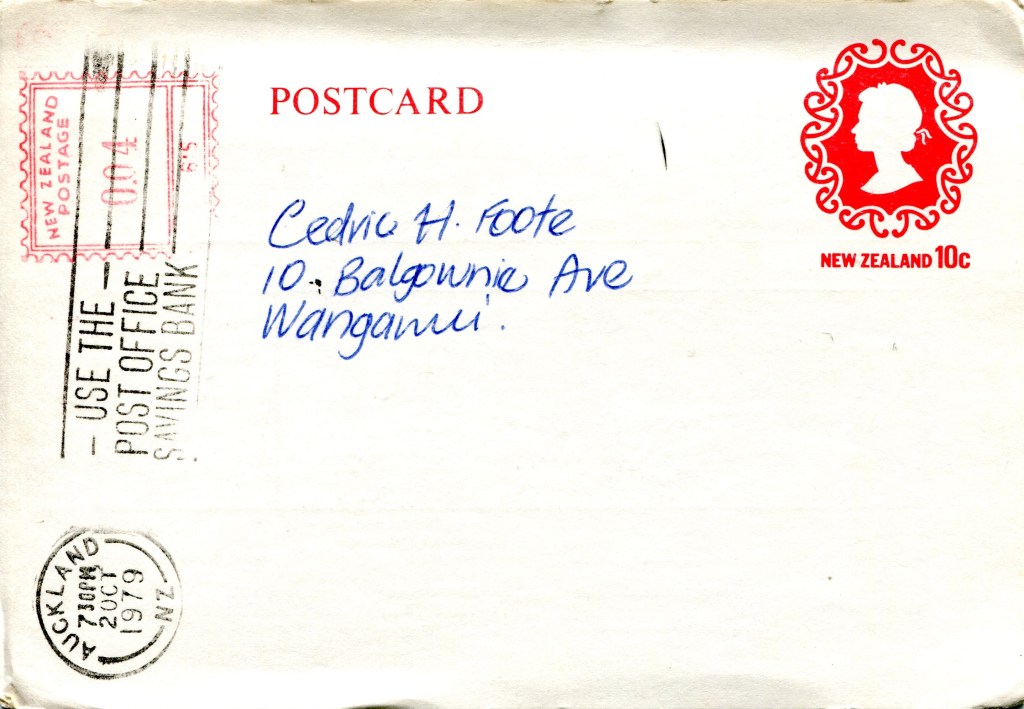 POSTCARD
NEW ZEALAND 10C
Cedric H. Foote
10. Balgownie Ave
Wanganui.
NEW ZEALAND
POSTAGE
0.04
USE THE
POST OFFICE
SAVINGS BANK
AUCKLAND
730PM
2 OCT
1979
NZ